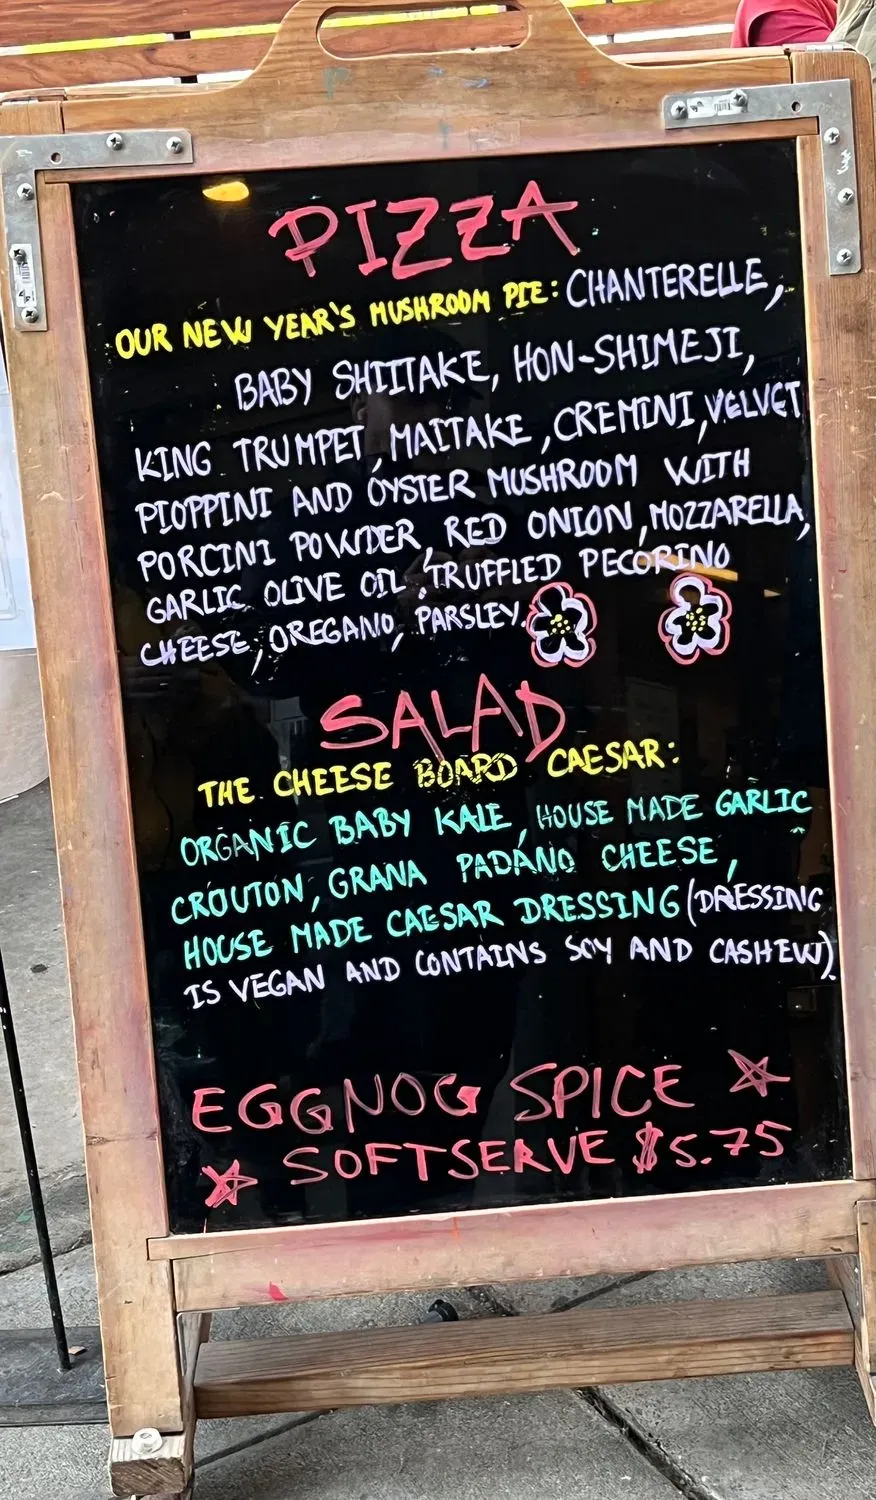 PIZZA
OUR NEW YEAR'S MUSHROOM PIE: CHANTERELLE,
BABY SHIITAKE, HON-SHIMEJI,
KING TRUMPET, MAITAKE, CREMINI, VELVET
PIOPPINI AND OYSTER MUSHROOM WITH
PORCINI POWDER, RED ONION, MOZZARELLA,
GARLIC OLIVE OIL, TRUFFLED PECORINO
CHEESE, OREGANO, PARSLEY.
SALAD
THE CHEESE BOARD CAESAR:
ORGANIC BABY KALE, HOUSE MADE GARLIC
CROUTON, GRANA PADANO CHEESE,
HOUSE MADE CAESAR DRESSING (DRESSING
IS VEGAN AND CONTAINS SOY AND CASHEW)
EGGNOG SPICE
SOFTSERVE $5.75